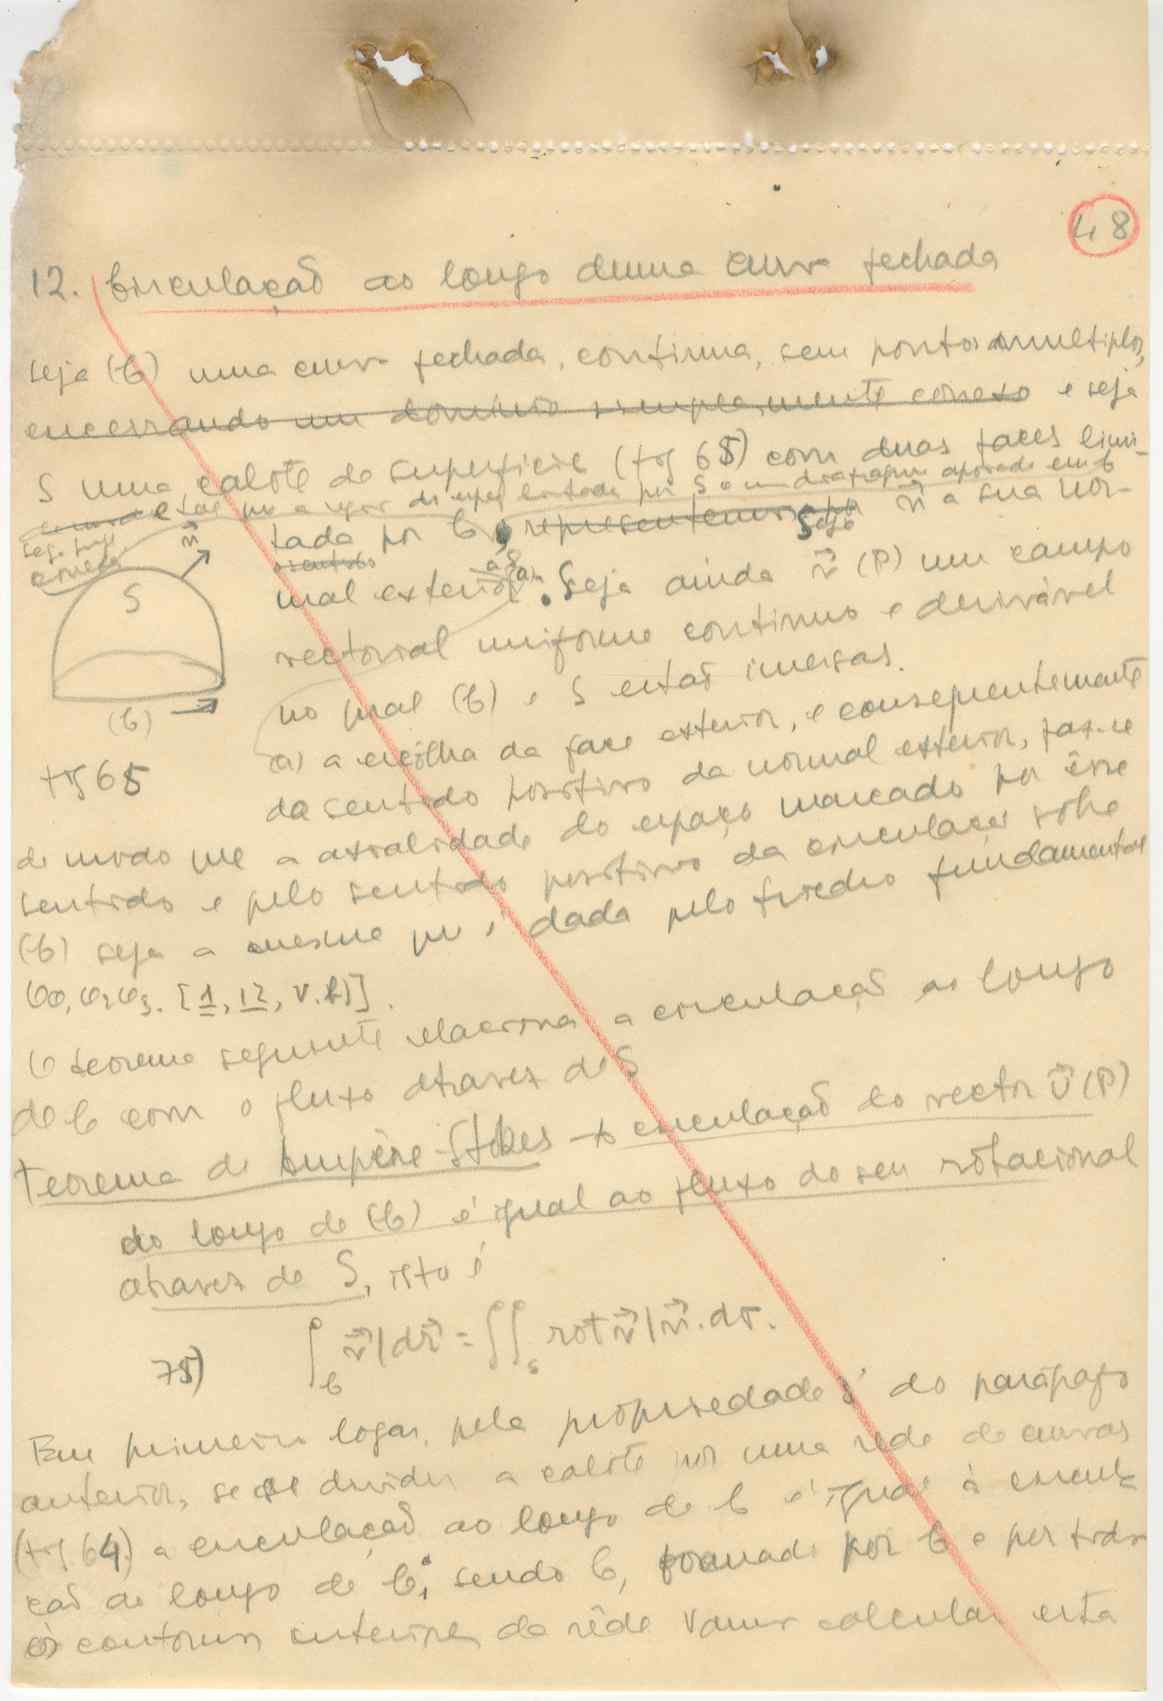 48
12. Circulação ao longo duma curva fechada
Seja (C) uma curva fechada, continua, sem pontos multiplos,
encerrando um dominio simplesmente conexo e seja
S uma calote de superficie (fig 65) com duas faces limi-
tada por C, representemos por seja n⃗ a sua nor-
mal exterior (a). Seja ainda v⃗ (P) um campo
vectorial uniforme continuo e derivável
no qual (C) e S estão imersas.
(a) a escolha da face exterior, e consequentemente
do sentido positivo da normal exterior, faz-se
de modo que a axialidade do espaço marcado por êsse
sentido e pelo sentido positivo da circulação sobre
(C) seja a mesma que é dada pelo triedro fundamental
[1, 12, V.b)].
S
n⃗
(C)
fig 65
O teorema seguinte relaciona a circulação ao longo
de C com o fluxo atraves de S
Teorema de Ampère-Stokes – A circulação do vector v⃗ (P)
ao longo de (C) é igual ao fluxo do seu rotacional
atraves de S, isto é
75) ∫C v⃗|dr⃗ = ∫∫S rot v⃗|n⃗.dσ.
Em primeiro logar, pela propriedade do parágrafo
anterior, se se dividir a calote por uma rêde de curvas
(fig. 64) a circulação ao longo de C é igual à circula-
ção ao longo de C₁, sendo C₁ formado por C e por todos
os contornos interiores da rêde. Vamos calcular esta